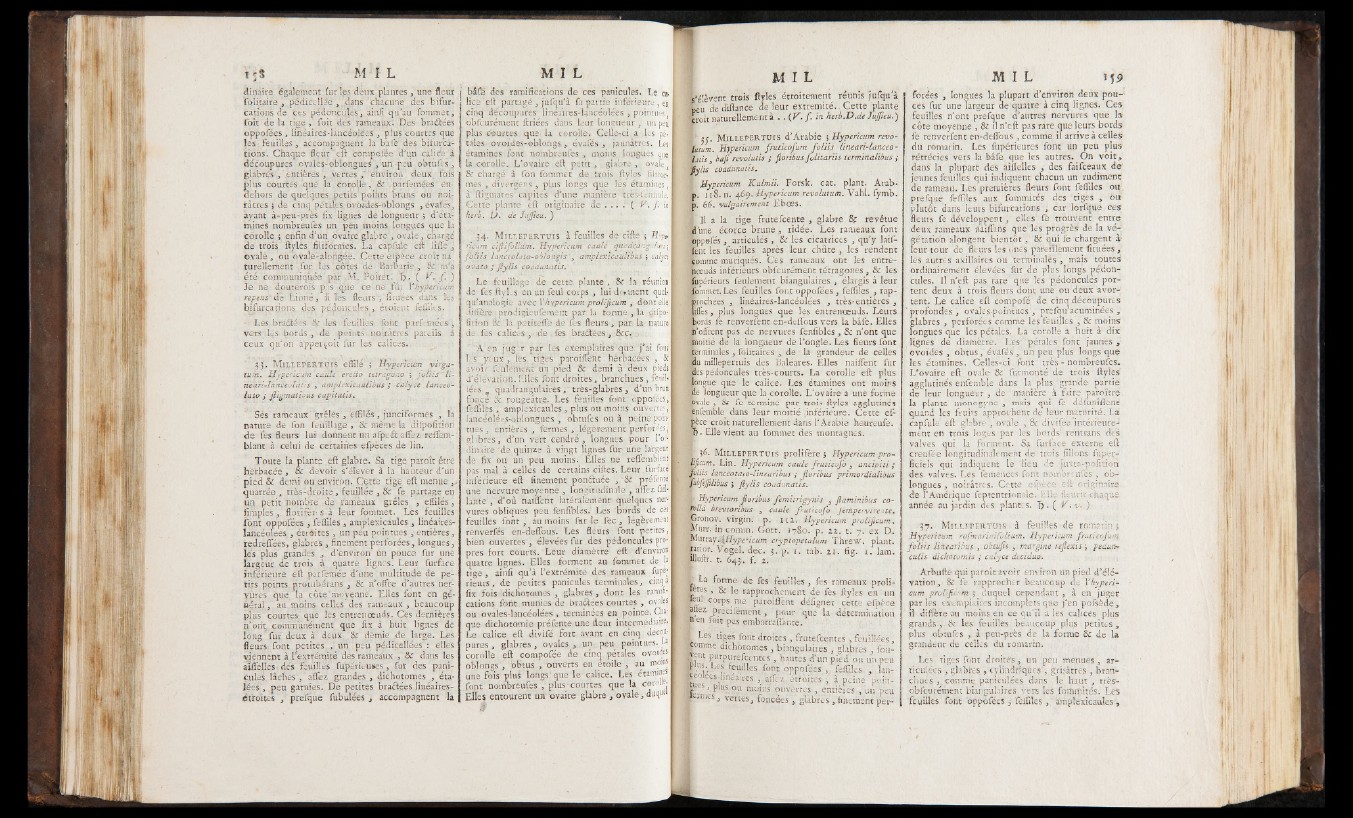 158 M I L
dinaire également sur les deux plantes, une fleur
solitaire, pédicellée, dans chacune des bifur-
cations de ces pédoncules, ainsi qu'au sommet,
soit de la tige, soit des rameaux. Des bractées
opposées, linéaires-lancéolées, plus courtes que
les feuilles, accompagnent la base des bifurca-
tions. Chaque fleur est composée d'un calice à
découpures ovales-oblongues, un peu obtuses,
glabres, entières, vertes, environ deux fois
plus courtes que la corolle, & parsemées en
dehors de quelques petits points bruns ou noi-
râtres; de cinq pétales ovoïdes-oblongs, évasés,
ayant à-peu-près six lignes de longueur; d'éta-
mines nombreuses un peu moins longues que la
corolle; enfin d'un ovaire glabre, ovale, chargé
de trois styles filiformes. La capsule est lisse,
ovale, ou ovale-alongée. Cette espèce croît na-
turellement sur les côtes de Barbarie, & m'a
été communiquée par M. Poiret. ♄. (V. s.)
Je ne douterois pas que ce ne fût l'hypericum
repens de Linné, si les fleurs, situées dans les
bifurcations des pédoncules, étoient sessiles.
Les bractées & les feuilles sont parsemées,
vers les bords, de points noirâtres pareils à
ceux qu'on apperçoit sur les calices.
33. MILLEPERTUIS effilé; Hypericum virga-
tum. Hypericum caule erecto tetragono; foliis li-
neari-lanceolatis, amplexicaulibus; calyce lanceo-
lato; stigmatibus capitatis.
Ses rameaux grêles, effilés, junciformes, la
nature de son feuillage, & même la disposition
de ses fleurs lui donnent un aspect assez ressem-
blant à celui de certaines espèces de lin.
Toute la plante est glabre. Sa tige paroît être
herbacée, & devoir s'élever à la hauteur d'un
pied & demi ou environ. Cette tige est menue,
quarrée, très-droite, feuillée, & se partage en
un petit nombre de rameaux grêles, effilés,
simples, florifères à leur sommet. Les feuilles
sont opposées, sessiles, amplexicaules, linéaires-
lancéolées, étroites, un peu pointues, entières,
redressées, glabres, finement perforées, longues,
les plus grandes, d'environ un pouce sur une
largeur de trois à quatre lignes. Leur surface
inférieure est parsemée d'une multitude de pe-
tits points protubérans, & n'offre d'autres ner-
vures que la côte moyenne. Elles sont en gé-
néral, au moins celles des rameaux, beaucoup
plus courtes que les entrenœuds. Ces dernières
n'ont communément que six à huit lignes de
long sur deux à deux & demie de large. Les
fleurs sont petites, un peu pédicellées: elles
viennent à l'extrémité des rameaux, & dans les
aisselles des feuilles supérieures, sur des pani-
cules lâches, assez grandes, dichotomes, éta-
lées, peu garnies. De petites bractées linéaires-
étroites, presque subulées, accompagnent la
M I L
base des ramifications de ces panicules. Le ca-
lice est partagé, jusqu'à sa partie inférieure, en
cinq découpures linéaires-lancéolées, pointues,
obscurément striées dans leur longueur, un peu
plus courtes que la corolle. Celle-ci a les pé-
tales ovoïdes-oblongs, évasés, jaunâtres. Les
étamines sont nombreuses, moins longues que
la corolle. L'ovaire est petit, glabre, ovale,
& chargé à son sommet de trois styles filifor-
mes, divergens, plus longs que les étamines,
à stigmates capités d'une manière très-sensible.
Cette plante est originaire de .... (V. s. in
herb. D. de Jussieu.)
34. MILLEPERTUIS à feuilles de ciste; Hype-
ricum cistifolium. Hypericum caule quadrangulari;
foliis lanceolato-oblongis, amplexicaulibus; calyce
ovato; stylis coadunatis.
Le feuillage de cette plante, & la réunion
de ses styles en un seul corps, lui donnent quel-
qu'analogie avec l'hypericum prolificum, dont elle
diffère prodigieusement par la forme, la dispo-
sition & la petitesse de ses fleurs, par la nature
de ses calices, de ses bractées, &c.
A en juger par les exemplaires que j'ai sous
les yeux, les tiges paroissent herbacées, &
avoir seulement un pied & demi à deux pieds
d'élévation. Elles sont droites, branchues, feuil-
lées, quadrangulaires, très-glabres, d'un brun
foncé & rougeâtre. Les feuilles sont opposées,
sessiles, amplexicaules, plus ou moins ouvertes,
lancéolées-oblongues, obtuses ou à peine poin-
tues, entières, fermes, légérement perforées,
glabres, d'un vert cendré, longues pour l'or-
dinaire de quinze à vingt lignes sur une largeur
de six ou un peu moins. Elles ne ressemblent
pas mal à celles de certains cistes. Leur surface
inférieure est finement ponctuée, & présente
une nervure moyenne, longitudinale, assez sail-
lante, d'où naissent latéralement quelques ner-
vures obliques peu sensibles. Les bords de ces
feuilles sont, au moins sur le sec, légérement
renversés en-dessous. Les fleurs sont petites,
bien ouvertes, élevées sur des pédoncules pro-
pres fort courts. Leur diamètre est d'environ
quatre lignes. Elles forment au sommet de la
tige, ainsi qu'à l'extrémité des rameaux supé-
rieurs, de petites panicules terminales, cinq à
six fois dichotomes, glabres, dont les ramifi-
cations sont munies de bractées courtes, ovales
ou ovales-lancéolées, terminées en pointe. Cha-
que dichotomie présente une fleur intermédiaire.
Le calice est divisé fort avant en cinq décou-
pures, glabres, ovales, un peu pointues. La
corolle est composée de cinq pétales ovoïdes
oblongs, obtus, ouverts en étoile, au moins
une fois plus longs que le calice. Les étamines
sont nombreuses, plus courtes que la corolle.
Elles entourent un ovaire glabre, ovale, duquel
M I L
s'élèvent trois styles étroitement réunis jusqu'à
peu de distance de leur extrémité. Cette plante
croît naturellement à ... (V. s. in herb. D. de Jussieu.)
35. MILLEPERTUIS d'Arabie; Hypericum revo-
lutum. Hypericum fruticosum foliis lineari-lanceo-
latis, basi revolutis; floribus solitariis terminalibus;
stylis coadunatis.
Hypericum Kalmii. Forsk. cat. plant. Arab.
p. 118. n. 469. Hypericum revolutum. Vahl. symb.
p. 66. vulgairement Ebœs.
Il a la tige frutescente, glabre & revêtue
d'une écorce brune, ridée. Les rameaux sont
opposés, articulés, & les cicatrices, qu'y lais-
sent les feuilles après leur chûte, les rendent
comme muriqués. Ces rameaux ont les entre-
nœuds inférieurs obscurément tétragones, & les
supérieurs seulement biangulaires, élargis à leur
sommet. Les feuilles sont opposées, sessiles, rap-
prochées, linéaires-lancéolées, très-entières,
lisses, plus longues que les entrenœuds. Leurs
bords se renversent en-dessous vers la base. Elles
n'offrent pas de nervures sensibles, & n'ont que
moitié de la longueur de l'ongle. Les fleurs sont
terminales, solitaires, de la grandeur de celles
du millepertuis des Baléares. Elles naissent sur
des pédoncules très-courts. La corolle est plus
longue que le calice. Les étamines ont moins
de longueur que la corolle. L'ovaire a une forme
ovale, & se termine par trois styles agglutinés
ensemble dans leur moitié inférieure. Cette es-
pèce croît naturellement dans l'Arabie heureuse.
♄. Elle vient au sommet des montagnes.
36. MILLEPERTUIS prolifère; Hypericum pro-
lificum. Lin. Hypericum caule fruticoso, ancipiti;
foliis lanceolato-linearibus; floribus primordialibus
subsessilibus; stylis coadunatis.
Hypericum floribus semitrigynis, staminibus co-
rollâ brevioribus, caule fruticoso sempervirente.
Gronov. virgin. p. 112. Hypericum prolificum.
Murr. in comm. Gott. 1780. p. 22. t. 7. ex D.
Murray. Hypericum cryptopetalum Threw. plant.
rarior. Vogel. dec. 3. p. 1. tab. 21. fig. 1. lam.
illustr. t. 643. f. 2.
La forme de ses feuilles, ses rameaux proli-
fères, & le rapprochement de ses styles en un
seul corps me paroissent désigner cette espèce
assez précisément, pour que la détermination
n'en soit pas embarrassante.
Les tiges sont droites, frutescentes, feuillées,
comme dichotomes, biangulaires, glabres, sou-
vent purpurescentes, hautes d'un pied ou un peu
plus. Les feuilles sont opposées, sessiles, lan-
céolées-linéaires, assez étroites, à peine poin-
tues, plus ou moins ouvertes, entières, un peu
fermes, vertes, foncées, glabres, finement per-
M I L 159
forées, longues la plupart d'environ deux pou-
ces sur une largeur de quatre à cinq lignes. Ces
feuilles n'ont presque d'autres nervures que la
côte moyenne, & il n'est pas rare que leurs bords
se renversent en-dessous, comme il arrive à celles
du romarin. Les supérieures sont un peu plus
rétrécies vers la base que les autres. On voit,
dans la plupart des aisselles, des faisceaux de
jeunes feuilles qui indiquent chacun un rudiment
de rameau. Les premières fleurs sont sessiles ou
presque sessiles aux sommités des tiges, ou
plutôt dans leurs bifurcations, car lorsque ces
fleurs se développent, elles se trouvent entre
deux rameaux naissans que les progrès de la vé-
gétation alongent bientôt, & qui se chargent à
leur tour de fleurs les unes pareillement situées,
les autres axillaires ou terminales, mais toutes
ordinairement élevées sur de plus longs pédon-
cules. Il n'est pas rare que les pédoncules por-
tent deux à trois fleurs dont une ou deux avor-
tent. Le calice est composé de cinq découpures
profondes, ovales pointues, presqu'acuminées,
glabres, perforées comme les feuilles, & moins
longues que les pétales. La corolle a huit à dix
lignes de diamètre. Les pétales sont jaunes,
ovoïdes, obtus, évasés, un peu plus longs que
les étamines. Celles-ci sont très-nombreuses.
L'ovaire est ovale & surmonté de trois styles
agglutinés ensemble dans la plus grande partie
de leur longueur, de manière à faire paroître
la plante monogyne, mais qui se désunissent
quand les fruits approchent de leur maturité. La
capsule est glabre, ovale, & divisée intérieure-
ment en trois loges par les bords rentrans des
valves qui la forment. Sa surface externe est
creusée longitudinalement de trois sillons super-
ficiels qui indiquent le lieu de juxta-position
des valves. Les semences sont nombreuses, ob-
longues, noirâtres. Cette espèce est originaire
de l'Amérique septentrionale. Elle fleurit chaque
année au jardin des plantes. ♄. (V. v.)
37. MILLEPERTUIS à feuilles de romarin;
Hypericum rosmarinifolium. Hypericum fruticosum
foliis linearibus, obtusis, margine reflexis; pedun-
culis dichotomis; calyce deciduo.
Arbuste qui paroît avoir environ un pied d'élé-
vation, & se rapprocher beaucoup de l'hyperi-
cum prolificum; duquel cependant, à en juger
par les exemplaires incomplets que j'en possède,
il diffère au moins en ce qu'il a les calices plus
grands, & les feuilles beaucoup plus petites,
plus obtuses, à peu-près de la forme & de la
grandeur de celles du romarin.
Les tiges sont droites, un peu menues, ar-
ticulées, glabres, cylindriques, grisâtres, bran-
chues, comme paniculées dans le haut, très-
obscurément biangulaires vers les sommités. Les
feuilles sont opposées, sessiles, amplexicaules,